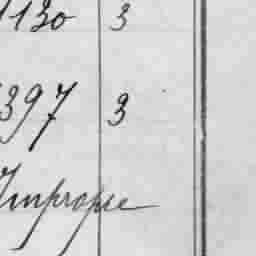 1130 3
397 3
Impropre